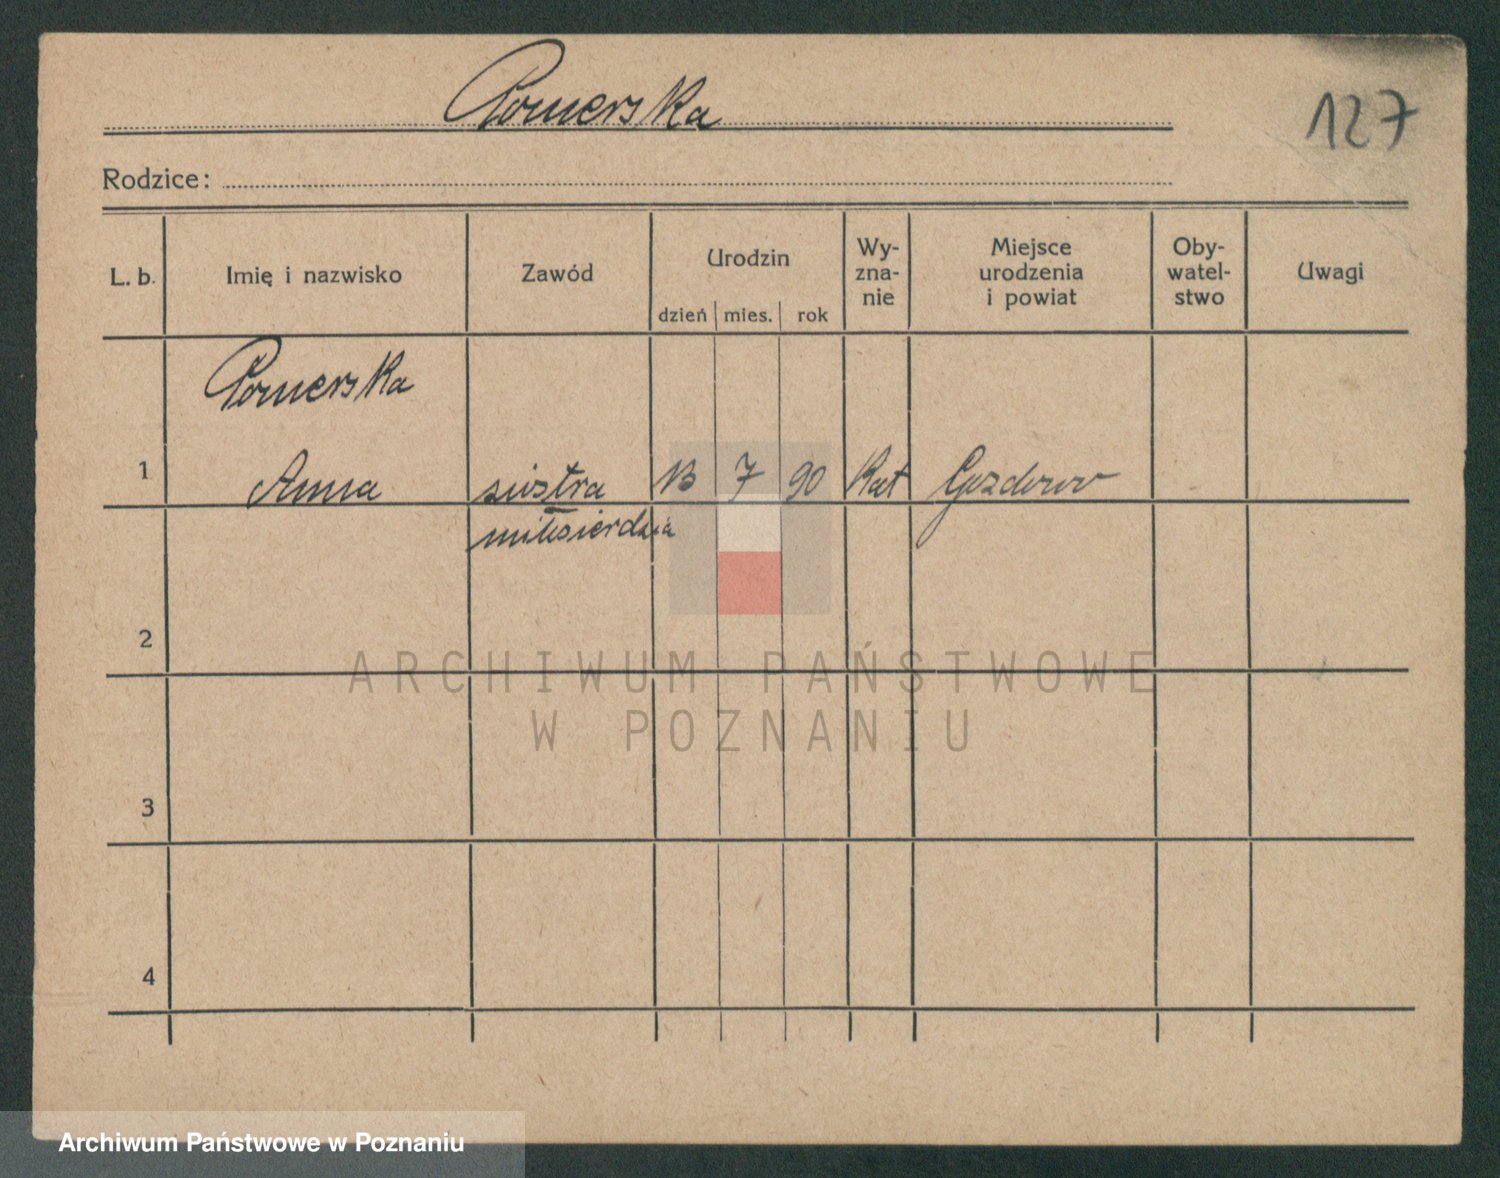 Pomerska
127
Rodzice:
L. b. Imię i nazwisko Zawód Urodzin dzień mies. rok Wy-zna-nie Miejsce urodzenia i powiat Oby-watel-stwo Uwagi
Pomerska
1 Anna siostra 13 7 90 Kat Gozdowo
miłosierdzia
2
3
4
ARCHIWUM PAŃSTWOWE
W POZNANIU
Archiwum Państwowe w Poznaniu